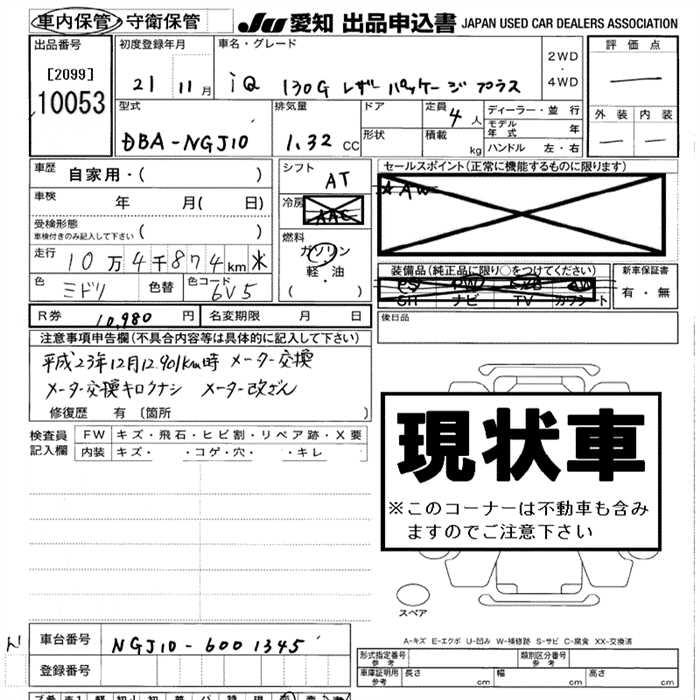 車内保管・守衛保管
JU 愛知 出品申込書 JAPAN USED CAR DEALERS ASSOCIATION
出品番号 初度登録年月 車名・グレード 評価点
[2099]
10053
21 11月 iQ 130G レザーパッケージ プラス
2WD
・
4WD
外装 内装
型式 排気量 ドア 定員 4人 ディーラー・並 行
モデル年式 年
DBA-NGJ10 1.32 CC 形状 積載 kg ハンドル 左・右
車歴 自家用・( )
シフト AT
セールスポイント(正常に機能するものに限ります)
車検 年 月( 日)
冷房 AAC
AAW
受検形態
車検付きのみ記入して下さい ( )
燃料
ガソリン
軽・油
( )
走行 10万4千874km
装備品(純正品に限り○をつけてください) 新車保証書
色 ミドリ 色替 色コード 6V5
PS PW
SH ナビ TV カワシート
有・無
R券 10,980 円 名変期限 月 日
後日品
注意事項申告欄(不具合内容等は具体的に記入して下さい)
平成23年12月12,901km時 メーター交換
メーター交換キロクナシ メーター改ざん
修復歴 有 〔箇所 〕
検査員記入欄
FW キズ・飛石・ヒビ割・リペア跡・X要
内装 キズ・ ・コゲ・穴・ ・キレ
現状車
※このコーナーは不動車も含み
ますのでご注意下さい
スペア
A-キズ E-エクボ U-凹み W-補修跡 S-サビ C-腐食 XX-交換済
車台番号 NGJ10-6001345
登録番号
形式指定番号 参考 類別区分番号 参考
車庫証明用 参考 長さ cm 幅 cm 高さ cm